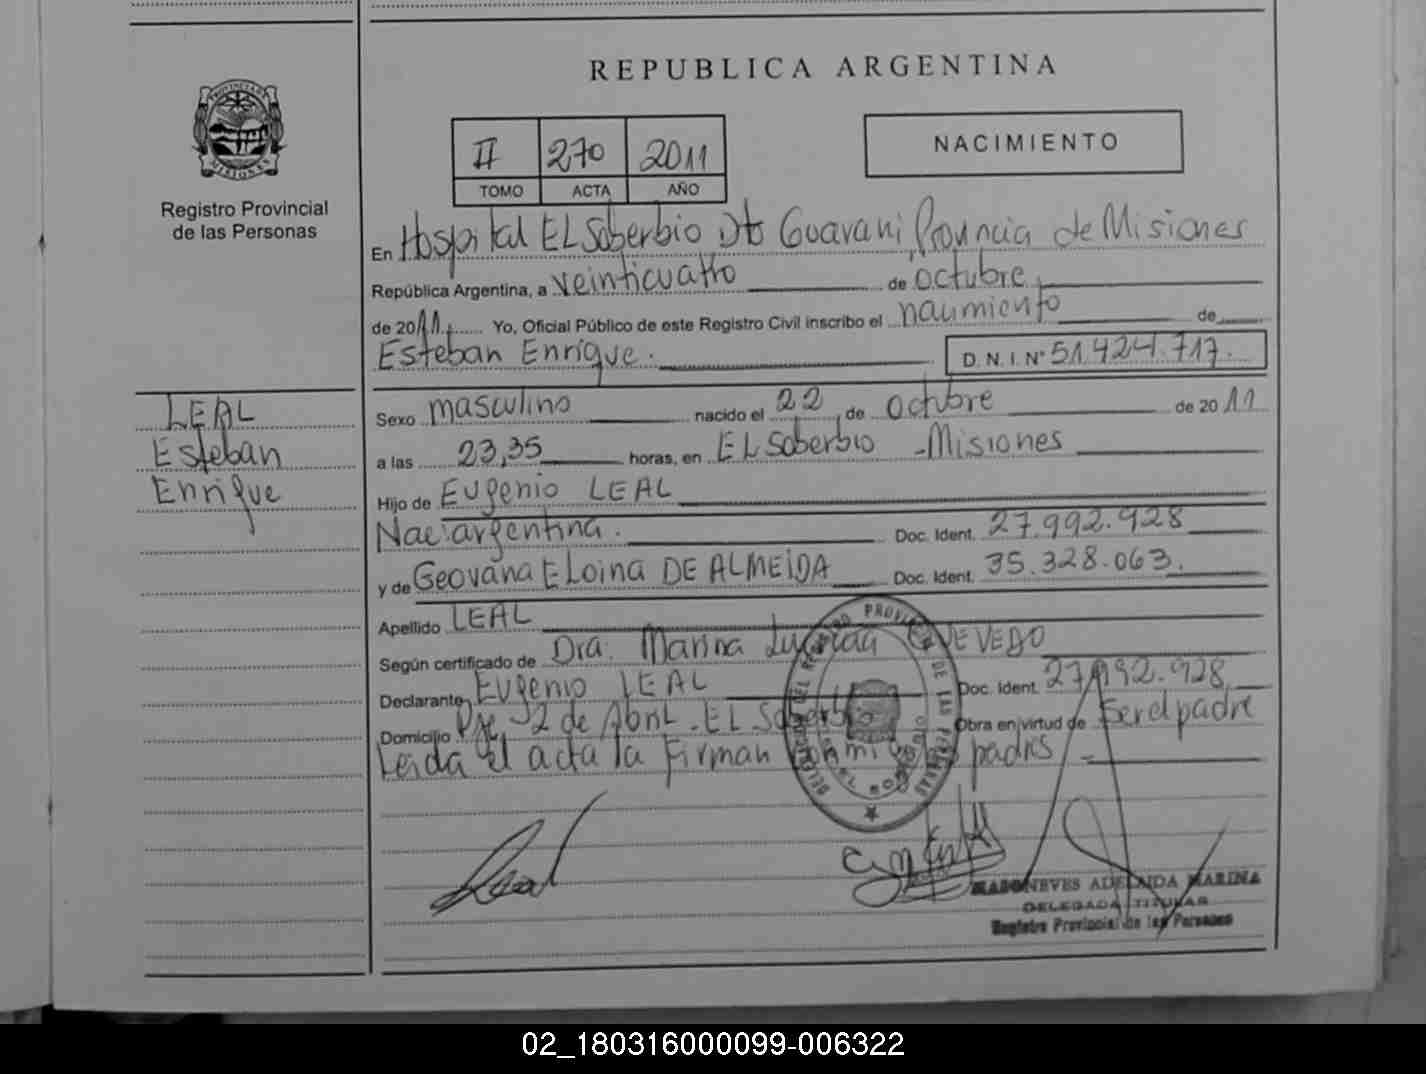 REPUBLICA ARGENTINA
PROVINCIA DE
MISIONES
Registro Provincial
de las Personas
II 270 2011
TOMO ACTA AÑO
NACIMIENTO
En Hospital EL Soberbio Dto Guarani, Provincia de Misiones
República Argentina, a veinticuatro de octubre
de 2011. Yo, Oficial Público de este Registro Civil inscribo el naumiento de
Esteban Enrique. D. N. I. Nº 51.424.717.
LEAL
Esteban
Enrique
Sexo masculino nacido el 22 de octubre de 2011
a las 23,35 horas, en EL Soberbio - Misiones
Hijo de Eugenio LEAL
Nac: argentina. Doc. Ident. 27.992.928
y de Geovana Eloina DE ALMEIDA Doc. Ident. 35.328.063.
Apellido LEAL
Según certificado de Dra. Marina QUEVEDO
Declarante Eugenio LEAL Doc. Ident. 27.992.928
Domicilio 2 de Abril - EL Soberbio Obra en virtud de Ser el padre
Leida el acta la Firman padres
Leal
MASONEVES ADELAIDA MARINA
DELEGADA TITULAR
Registro Provincial de las Personas
02_180316000099-006322